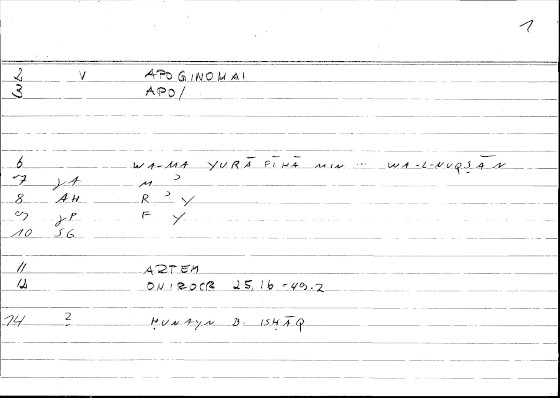 1
2 V APOGINOMAI
3 APO/
6 WA-MA YURĀ FĪHĀ MIN ... WA-L-NUQṢĀN
7 M ʾ
8 AH R ʾ Y
9 F Y
10 SG
11 ARTEM
12 ONIROCR 25.16 - 49.2
14 2 ḤUNAYN B. ISḤĀQ